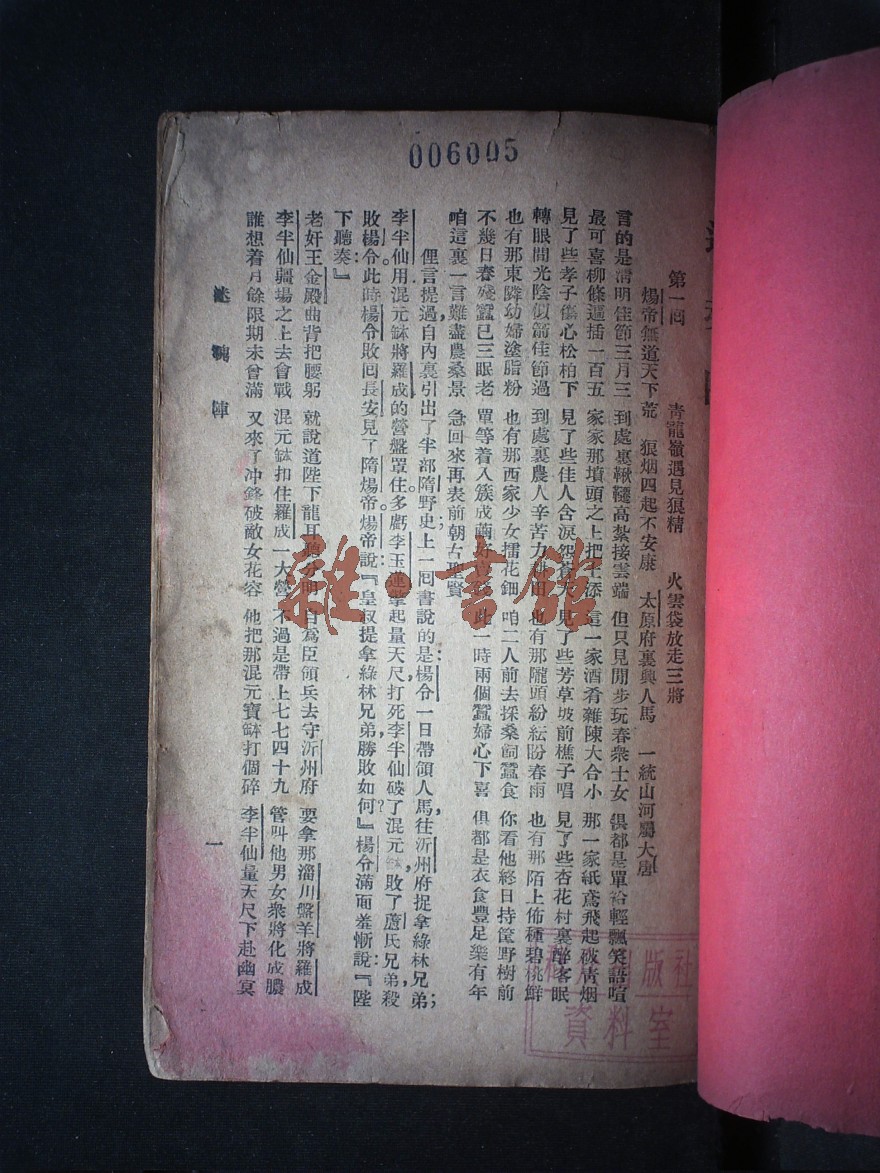 006005
第一回 青龍嶺遇見狼精 火雲袋放走三將
煬帝無道天下荒 狼烟四起不安康 太原府裏興人馬 一統山河屬大唐
言的是清明佳節三月三 到處裏鞦韆高紮接雲端 但只見閒步玩春衆士女 俱都是單袷輕飄笑語喧
最可喜柳條遍插一百五 家家那墳頭之上把土添 這一家酒肴雜陳大合小 那一家紙鳶飛起破青烟
見了些孝子傷心松柏下 見了些佳人含淚怨蒼天 見了些芳草坡前樵子唱 見了些杏花村裏醉客眠
轉眼間光陰似箭佳節過 到處裏農人辛苦力耕田 也有那隴頭紛紜盼春雨 也有那陌上佈種碧桃鮮
也有那東隣幼婦塗脂粉 也有那西家少女擂花鈿 咱二人前去採桑飼蠶食 你看他終日持筐野樹前
不幾日春殘蠶已三眠老 單等着入簇成繭好 此一時兩個蠶婦心下喜 俱都是衣食豐足樂有年
咱這裏一言難盡農桑景 急回來再表前朝古聖賢
俚言提過,自內裏引出了半部隋野史上一回書;說的是:楊令一日帶領人馬,往沂州府捉拿綠林兄弟;
李半仙用混元缽將羅成的營盤罩住。多虧李玉蓮擎起量天尺,打死李半仙破了混元缽,敗了蘆氏兄弟,殺
敗楊令。此時楊令敗回長安見了隋煬帝。煬帝說:『皇叔提拿綠林兄弟,勝敗如何?』楊令滿面羞慚說:『陛
下聽奏:』
老奸王金殿曲背把腰躬 就說道陛下龍耳聽分明 自爲臣領兵去守沂州府 要拿那淄川盤羊將羅成
李半仙疆場之上去會戰 混元缽扣住羅成一大營 不過是帶上七七四十九 管叫他男女衆將化成膿
誰想着月餘限期未曾滿 又來了冲鋒破敵女花容 他把那混元寶缽打個碎 李半仙量天尺下赴幽冥
陣
一
雜·書館
版社
資料室